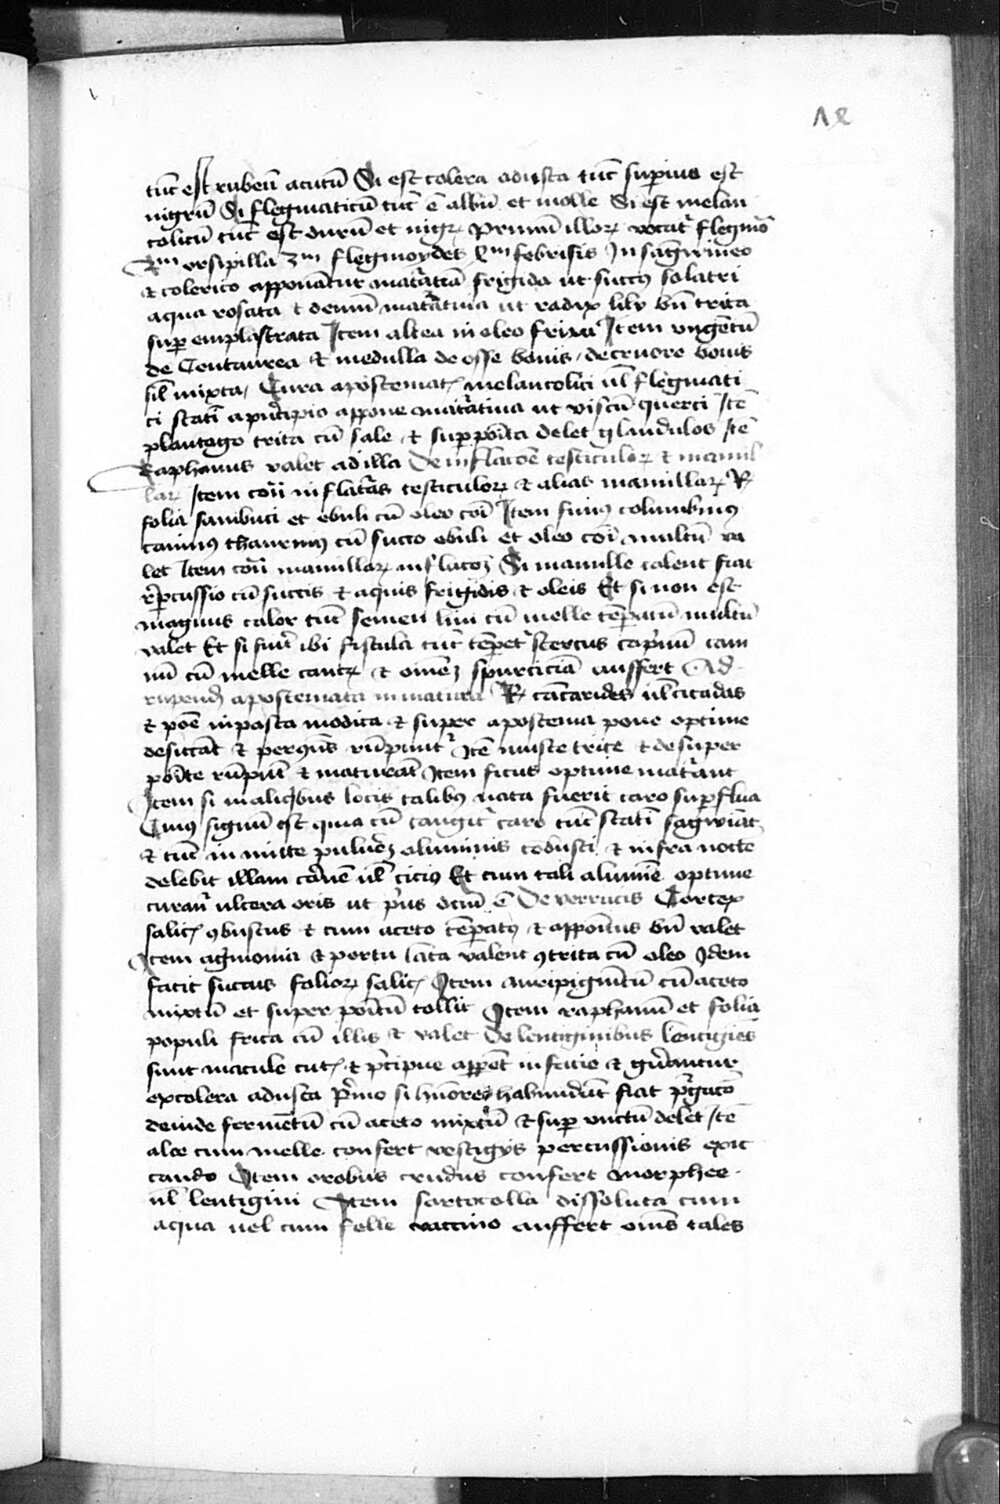 18
tūc est rubeū acutū Si est colera adusta tūc suꝑius est
nigrū Si flegmaticū tūc ē albū et molle Si est melan
colicū tūc est durū et nigꝝ primū illoꝝ vocat᷑ flegmō
2m ersipilla 3m flegmoydes 4m sebrisis In sāgwineo
⁊ colerico apponātur frigida ut succꝰ solatri
aqua rosata ⁊ demū maturātiua ut radix lilij bn̄ trita
suꝑ emplastrata Item altea in oleo frixa Item vngētū
de Centaurea ⁊ medulla de osse bouis de cruore bouis
sil̄ mixta Cura apostemat melancolici ul̄ flegmati
ci statī a prīcipio appone maturatiua ut viscū querci Itē
plantago trita cū sale ⁊ supposita delet glandulos Itē
Raphanus valet ad illa De inflacōe testiculoꝝ ⁊ mamil
laꝝ Item cōtra inflatās testiculoꝝ ⁊ alias mamillaꝝ ℞
folia sambuci et ebuli cū oleo cōi Item fimꝰ columbinꝰ
caninꝰ cū succo ebuli et oleo cōi multū va
let Item cōtra mamillaꝝ inflacōꝫ Si mamille calent fiat
repcussio cū succis ⁊ aquis frigidis ⁊ oleis Et si non est
magnus calor tūc semen lini cū melle tēperatū multū
valet Et si fuerit ibi fistula tūc tēperet᷑ stercus caprinū cam
nū cū melle ⁊ omnēꝫ spurciciā auffert Ad
rūpend apostemata inmatura ℞ cātarides ul̄ cicadas
⁊ pōe in pasta modica ⁊ super apostema pone optime
desiccāt ⁊ rūpunt᷑ Itē musce trite ⁊ desuper
posite rūpūt ⁊ maturāt Item ficus optime maturant
Item si in aliqibus locis talibꝰ nata fuerit caro suꝑflua
Cuiꝰ signū est quia cū tangit᷑ caro tūc statī sāgwīat
⁊ tūc inmitte puluerēꝫ aluminis cōbusti ⁊ infra nocte
delebit illam carnē ul̄ cicius Et cum tali alumīe optime
curant᷑ ulcera oris ut prius dictū ē De verrucis Cortex
salic ꝯbustus ⁊ cum aceto tēperatꝰ ⁊ appositus bn̄ valet
Item agrimonia ⁊ portulata valent ꝯtrita cū oleo Idem
facit succus folioꝝ salic Item auripigmētū cū aceto
mixtū et super positū tollit Item raphanū et folia
populi frica cū illis ⁊ valet De lentiginibus Lentigies
sunt macule cut ⁊ p̄cipue apparēt in facie ⁊ gn̄antur
ex colera adusta Primo si hūores habundāt fiat pᷣgacō
deinde fermētū cū aceto mixtū ⁊ suꝑ vnctū delet Itē
aloe cum melle confert vestigijs percussionis exic
cando Item orobus crudus confert morphee
ul̄ lentigini Item sarcocolla dissoluta cum
aqua uel cum felle vaccino auffert omīs tales